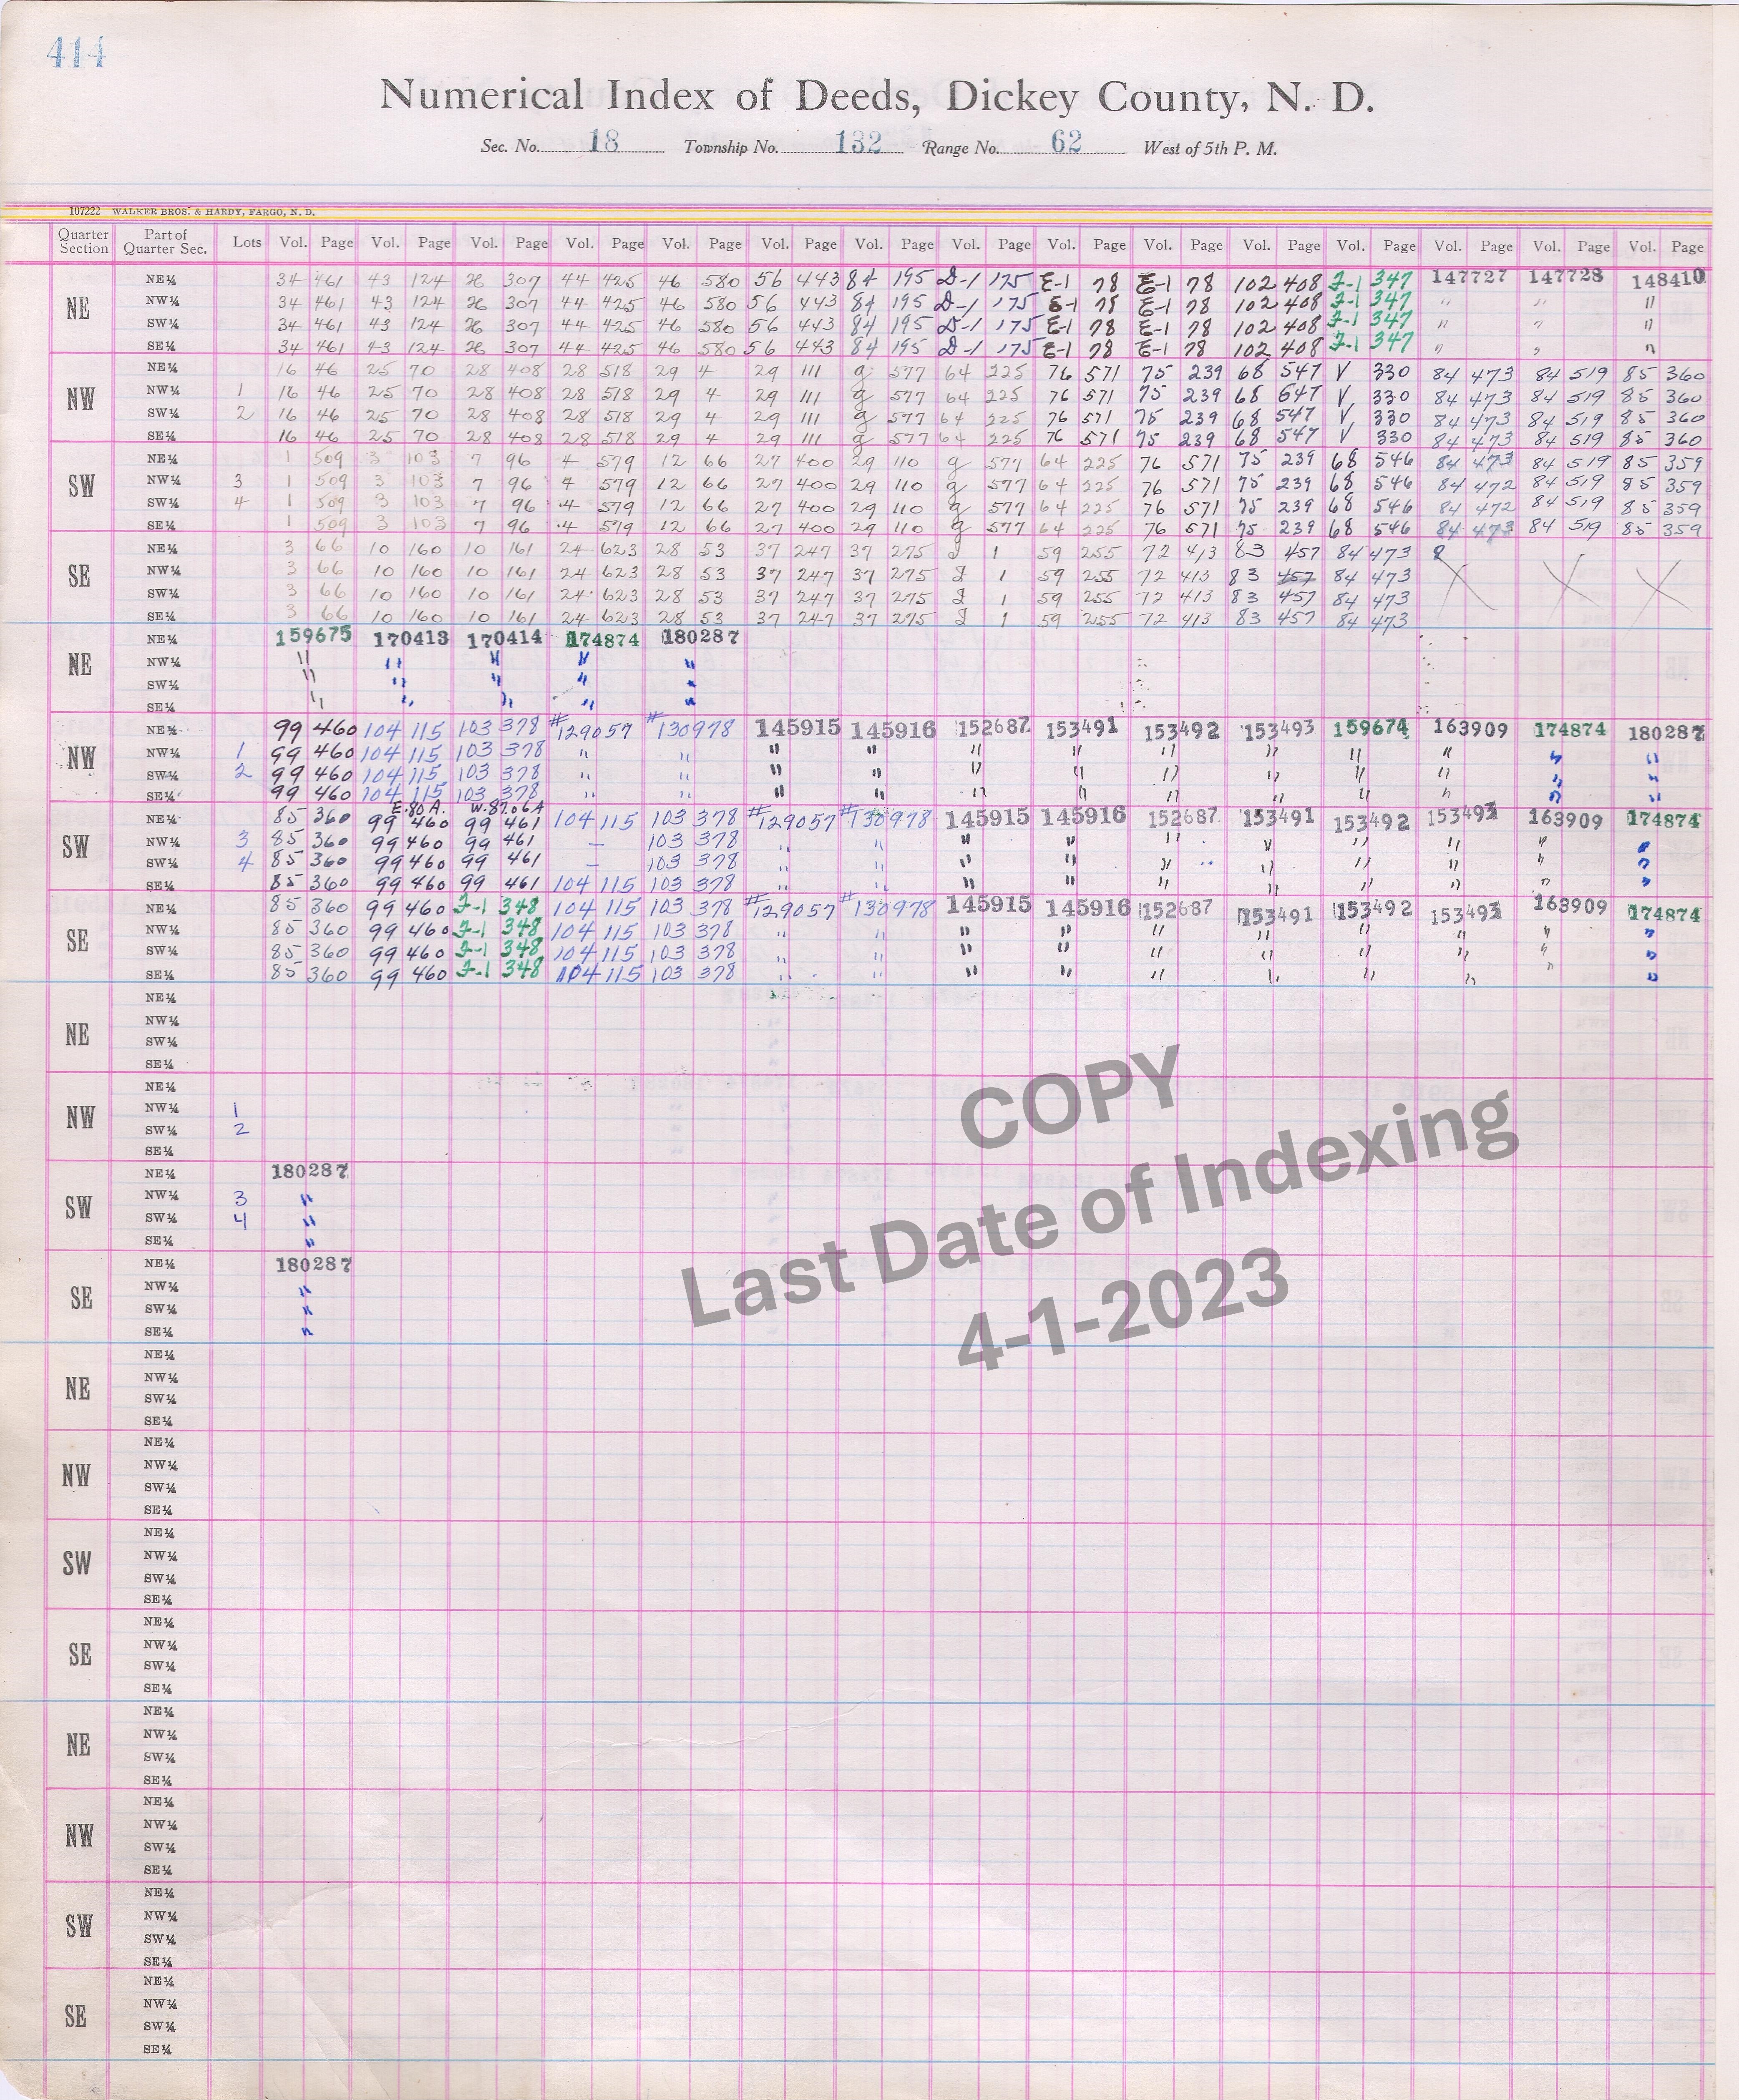 414
Numerical Index of Deeds, Dickey County, N. D.
Sec. No. 18 Township No. 132 Range No. 62 West of 5th P. M.
107222 WALKER BROS. & HARDY, FARGO, N. D.
Quarter Section Part of Quarter Sec. Lots Vol. Page Vol. Page Vol. Page Vol. Page Vol. Page Vol. Page Vol. Page Vol. Page Vol. Page Vol. Page Vol. Page Vol. Page Vol. Page Vol. Page Vol. Page
NE
NE¼ 34 461 43 124 H 307 44 425 46 580 56 443 84 195 D-1 175 E-1 78 E-1 78 102 408 J-1 347 147727 147728 148410
NW¼ 34 461 43 124 H 307 44 425 46 580 56 443 84 195 D-1 175 E-1 78 E-1 78 102 408 J-1 347 " " "
SW¼ 34 461 43 124 H 307 44 425 46 580 56 443 84 195 D-1 175 E-1 78 E-1 78 102 408 J-1 347 " " "
SE¼ 34 461 43 124 H 307 44 425 46 580 56 443 84 195 D-1 175 E-1 78 E-1 78 102 408 J-1 347 " " "
NW
NE¼ 16 46 25 70 28 408 28 518 29 4 29 111 g 577 64 225 76 571 75 239 68 547 V 330 84 473 84 519 85 360
NW¼ 1 16 46 25 70 28 408 28 518 29 4 29 111 g 577 64 225 76 571 75 239 68 547 V 330 84 473 84 519 85 360
SW¼ 2 16 46 25 70 28 408 28 518 29 4 29 111 g 577 64 225 76 571 75 239 68 547 V 330 84 473 84 519 85 360
SE¼ 16 46 25 70 28 408 28 518 29 4 29 111 g 577 64 225 76 571 75 239 68 547 V 330 84 473 84 519 85 360
SW
NE¼ 1 509 3 103 7 96 4 579 12 66 27 400 29 110 g 577 64 225 76 571 75 239 68 546 84 473 84 519 85 359
NW¼ 3 1 509 3 103 7 96 4 579 12 66 27 400 29 110 g 577 64 225 76 571 75 239 68 546 84 472 84 519 85 359
SW¼ 4 1 509 3 103 7 96 4 579 12 66 27 400 29 110 g 577 64 225 76 571 75 239 68 546 84 472 84 519 85 359
SE¼ 1 509 3 103 7 96 4 579 12 66 27 400 29 110 g 577 64 225 76 571 75 239 68 546 84 473 84 519 85 359
SE
NE¼ 3 66 10 160 10 161 24 623 28 53 37 247 37 275 J 1 59 255 72 413 83 457 84 473
NW¼ 3 66 10 160 10 161 24 623 28 53 37 247 37 275 J 1 59 255 72 413 83 457 84 473
SW¼ 3 66 10 160 10 161 24 623 28 53 37 247 37 275 J 1 59 255 72 413 83 457 84 473
SE¼ 3 66 10 160 10 161 24 623 28 53 37 247 37 275 J 1 59 255 72 413 83 457 84 473
NE
NE¼ 159675 170413 170414 174874 180287
NW¼ " " " " "
SW¼ " " " " "
SE¼ " " " " "
NW
NE¼ 99 460 104 115 103 378 #129057 #130978 145915 145916 152687 153491 153492 153493 159674 163909 174874 180287
NW¼ 1 99 460 104 115 103 378 " " " " " " " " " " " "
SW¼ 2 99 460 104 115 103 378 " " " " " " " " " " " "
SE¼ 99 460 104 115 103 378 " " " " " " " " " " " "
E.80 A. W.87.06A
SW
NE¼ 85 360 99 460 99 461 104 115 103 378 #129057 #130978 145915 145916 152687 153491 153492 153493 163909 174874
NW¼ 3 85 360 99 460 99 461 – 103 378 " " " " " " " " " "
SW¼ 4 85 360 99 460 99 461 – 103 378 " " " " " " " " " "
SE¼ 85 360 99 460 99 461 104 115 103 378 " " " " " " " " " "
SE
NE¼ 85 360 99 460 J-1 348 104 115 103 378 #129057 #130978 145915 145916 152687 153491 153492 153493 163909 174874
NW¼ 85 360 99 460 J-1 348 104 115 103 378 " " " " " " " " " "
SW¼ 85 360 99 460 J-1 348 104 115 103 378 " " " " " " " " " "
SE¼ 85 360 99 460 J-1 348 104 115 103 378 " " " " " " " " " "
NE
NE¼
NW¼
SW¼
SE¼
NW
NE¼
NW¼ 1
SW¼ 2
SE¼
SW
NE¼ 180287
NW¼ 3 "
SW¼ 4 "
SE¼ "
SE
NE¼ 180287
NW¼ "
SW¼ "
SE¼ "
COPY
Last Date of Indexing
4-1-2023
NE
NE¼
NW¼
SW¼
SE¼
NW
NE¼
NW¼
SW¼
SE¼
SW
NE¼
NW¼
SW¼
SE¼
SE
NE¼
NW¼
SW¼
SE¼
NE
NE¼
NW¼
SW¼
SE¼
NW
NE¼
NW¼
SW¼
SE¼
SW
NE¼
NW¼
SW¼
SE¼
SE
NE¼
NW¼
SW¼
SE¼